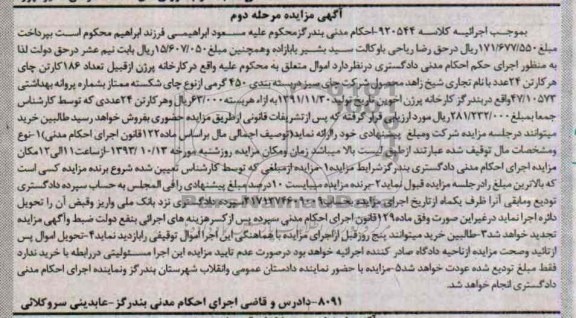 آگهی مزایده مرحله دوم
بموجب اجرائیه کلاسه ۹۲۰۵۴۴-احکام مدنی بندرگزمحکوم علیه مسعود ابراهیمی فرزند ابراهیم محکوم است بپرداخت
مبلغ۱۷۱/۶۷۷/۵۵۰ریال درحق رضا ریاحی باوکالت سید بشیر بابازاده وهمچنین مبلغ۱۵/۶۰۷/۰۵۰ریال بابت نیم عشر درحق دولت لذا
به منظور اجرای حکم احکام مدنی دادگستری درنظردارد اموال متعلق به محکوم علیه واقع درکارخانه پرژن ازقبیل تعداد ۱۸۶کارتن چای
هرکارتن ۲۴عدد با نام تجاری شیخ زاهد محصول شرکت چای سبز بسته بندی ۴۵۰ گرمی ازنوع چای شکسته ممتاز بشماره پروانه بهداشتی
۴۷/۱۰۵۷۳واقع دربندرگز کارخانه پرژن تولید۱۳۹۱/۱۱/۳۰به ازاء هربسته۶۳/۰۰۰ریال وهرکارتن ۲۴عددی که توسط کارشناس
جمعا بمبلغ۲۸۱/۲۳۲/۰۰۰ریال مورد ارزیابی قرار گرفته که پس ازتشریفات قانونی ازطریق مزایده حضوری بفروش خواهد رسید طالبین خرید
میتوانند درجلسه مزایده شرکت ومبلغ پیشنهادی خود راارائه نمایند(توصیف اجمالی مال براساس ماده۱۲۲قانون اجرای احکام مدنی)۱-نوع
ومشخصات مال توقیف شده عبارتند ازطرف لیست بالا میباشد زمان ومکان مزایده روزشنبه مورخه ۱۳۹۳/۱۰/۱۳-ازساعت۱۱الی۱۲مکان
مزایده اجرای احکام مدنی دادگستری بندرگز شرایط مزایده۱-مزایده ازمبلغی که توسط کارشناس تعیین شده شروع برنده مزایده کسی است
که بالاترین مبلغ رادرجلسه مزایده قبول نماید۲-برنده مزایده میبایست ۱۰درصد مبلغ پیشنهادی رافی المجلس به حساب سپرده دادگستری
تودیع ومابقی آنرا ظرف یکماه ازتاریخ اجرای مزایده سپرده دادگستری نزد بانک ملی واریز وقبض آن را تحویل
دائره اجرا نماید درغیراین صورت وفق ماده۱۲۹قانون اجرای احکام مدنی سپرده پس ازکسرهزینه های اجرائی بنفع دولت ضبط وآگهی مزایده
تجدید خواهد شد۳-طالبین خرید میتوانند پنج روزقبل ازاجرای مزایده با هماهنگی این اجرا اموال توقیفی رابازدید نماید۴-تحویل اموال پس
ازتائید وصحت مزایده ازناحیه دادگاه صادر کننده اجرائیه خواهد بود درصورت عدم تایید مزایده این اجرا مسئولیتی دررابطه با خرید ندارد
فقط مبلغ تودیع شده عودت خواهد شد۵-مزایده با حضور نماینده دادستان عمومی وانقلاب شهرستان بندرگز ونماینده اجرای احکام مدنی
دادگستری انجام خواهد شد.
۸۰۹۱-دادرس و قاضی اجرای احکام مدنی بندرگز-عابدینی سروکلائی